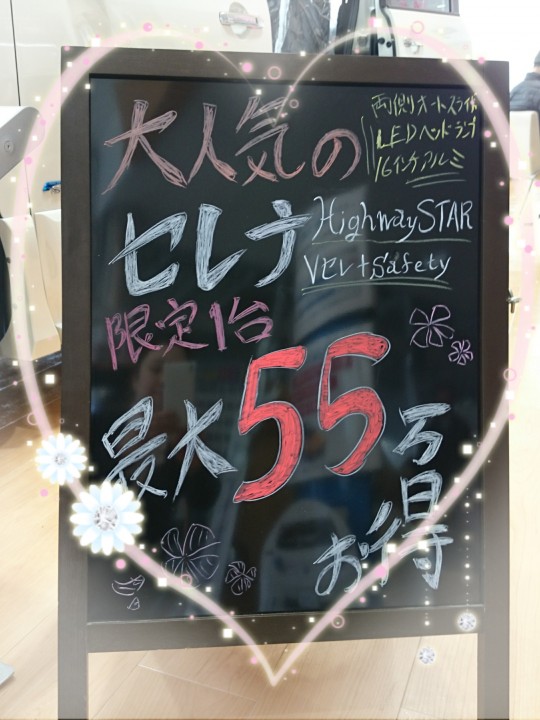 大人気の
両側オートスライド
LEDヘッドランプ
16インチアルミ
セレナ
HighwaySTAR
Vセレ+Safety
限定1台
最大55万
お得